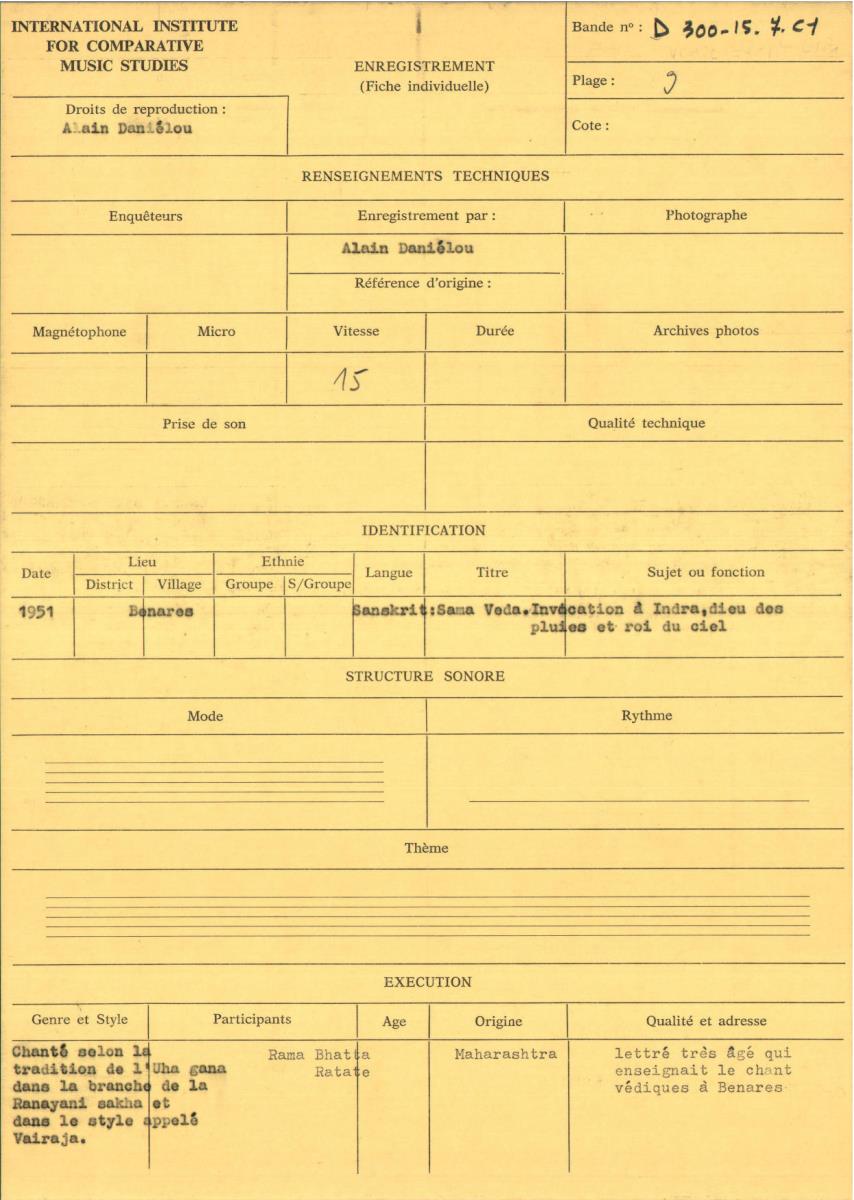 INTERNATIONAL INSTITUTE
FOR COMPARATIVE
MUSIC STUDIES
Droits de reproduction :
Alain Daniélou
ENREGISTREMENT
(Fiche individuelle)
Bande nº : D 300-15. 7. C1
Plage : 9
Cote :
RENSEIGNEMENTS TECHNIQUES
Enquêteurs
Enregistrement par :
Photographe
Alain Daniélou
Référence d'origine :
Magnétophone
Micro
Vitesse
Durée
Archives photos
15
Prise de son
Qualité technique
IDENTIFICATION
Date
Lieu
Ethnie
Langue
Titre
Sujet ou fonction
District
Village
Groupe
S/Groupe
1951
Benares
Sanskrit:Sama Veda.Invocation à Indra,dieu des
pluies et roi du ciel
STRUCTURE SONORE
Mode
Rythme
Thème
EXECUTION
Genre et Style
Participants
Age
Origine
Qualité et adresse
Chanté selon la
tradition de l'Uha gana
dans la branche de la
Ranayani sakha et
dans le style appelé
Vairaja.
Rama Bhatta
Ratate
Maharashtra
lettré très âgé qui
enseignait le chant
védiques à Benares